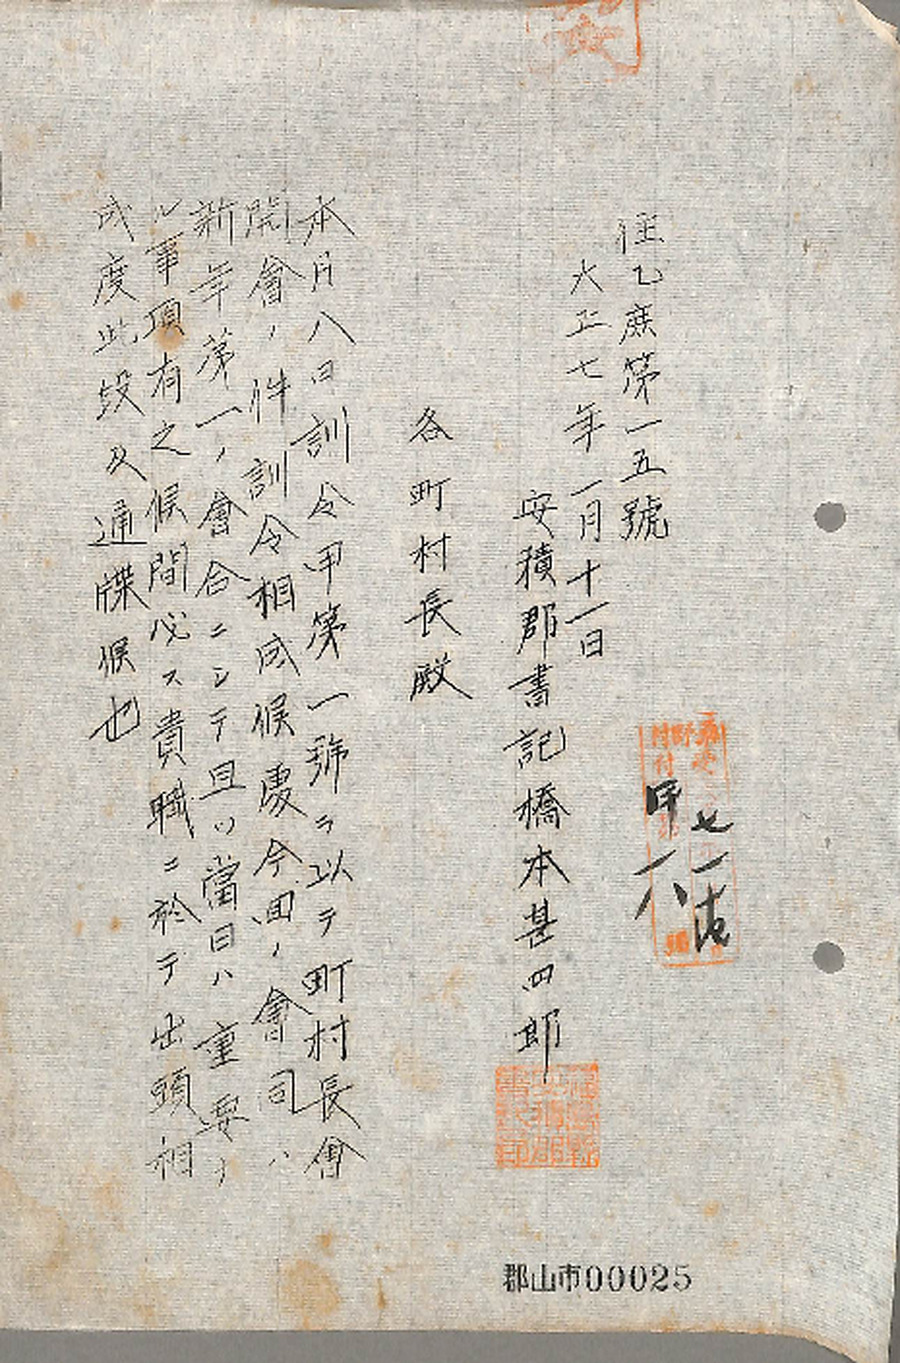 往乙庶第一五號
大正七年一月十一日
安積郡書記橋本甚四郎
各町村長殿
本月八日訓令甲第一號ヲ以テ町村長會
開會ノ件訓令相成候處今回ノ會同ハ
新年第一ノ會合ニシテ且ツ當日ハ重要ナ
ル事項有之候間必ス貴職ニ於テ出頭相
成度此段及通牒候也
七一
甲
一八
郡山市00025